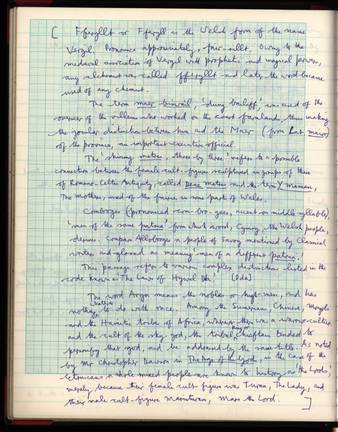 [ Fferyllt or Fferyll is the Welsh form of the name
Vergil. Pronounce approximately, fair-ullt. Owing to the
medieval association of Vergil with prophetic and magical powers,
any alchemist was called fferyllt and later the word became
used of any chemist.
The term maer biswail, 'dung bailiff', was used of the
overseer of the villeins who worked on the court farmlands, thus making
the jocular distinction between him and the Maer (from Lat. maior)
of the province, an important executive official.
The shining matres, three by three' refers to a possible
connection between the female cult-figures sculptured in groups of three
of Romano-Celtic Antiquity, called deae matres and the term Y Mamau,
The mothers, used of the fairies in some parts of Wales.
Combroges (pronounced com-bro-gees, accent on middle syllable)
'men of the same patria' from which word, Cymry, the Welsh people,
derives. Compare Allobroges a people of Savoy mentioned by Classical
writers and glossed as meaning 'men of a different patria'.
This passage refers to various complex distinctions listed in the
code known as The Laws of Hywel Dda.
The word Arglwydd means the nobles or high-men, and has
nothing to do with race. Among the Sumerian, Chinese, Mongols
and the Hamitic tribes of Africa, wherever there was a warrior-culture
and the cult of the sky-god, the tribal chieftain tended to
personify that god, and be addressed by the same title. As noted
by Mr Christopher Dawson in The Age of the Gods in the case of the
Etruscans a whole mixed people are known to history as 'the Lords'
merely because their female cult-figure was Turan, The Lady, and
their male cult-figure Maristuran, Mars the Lord. ]